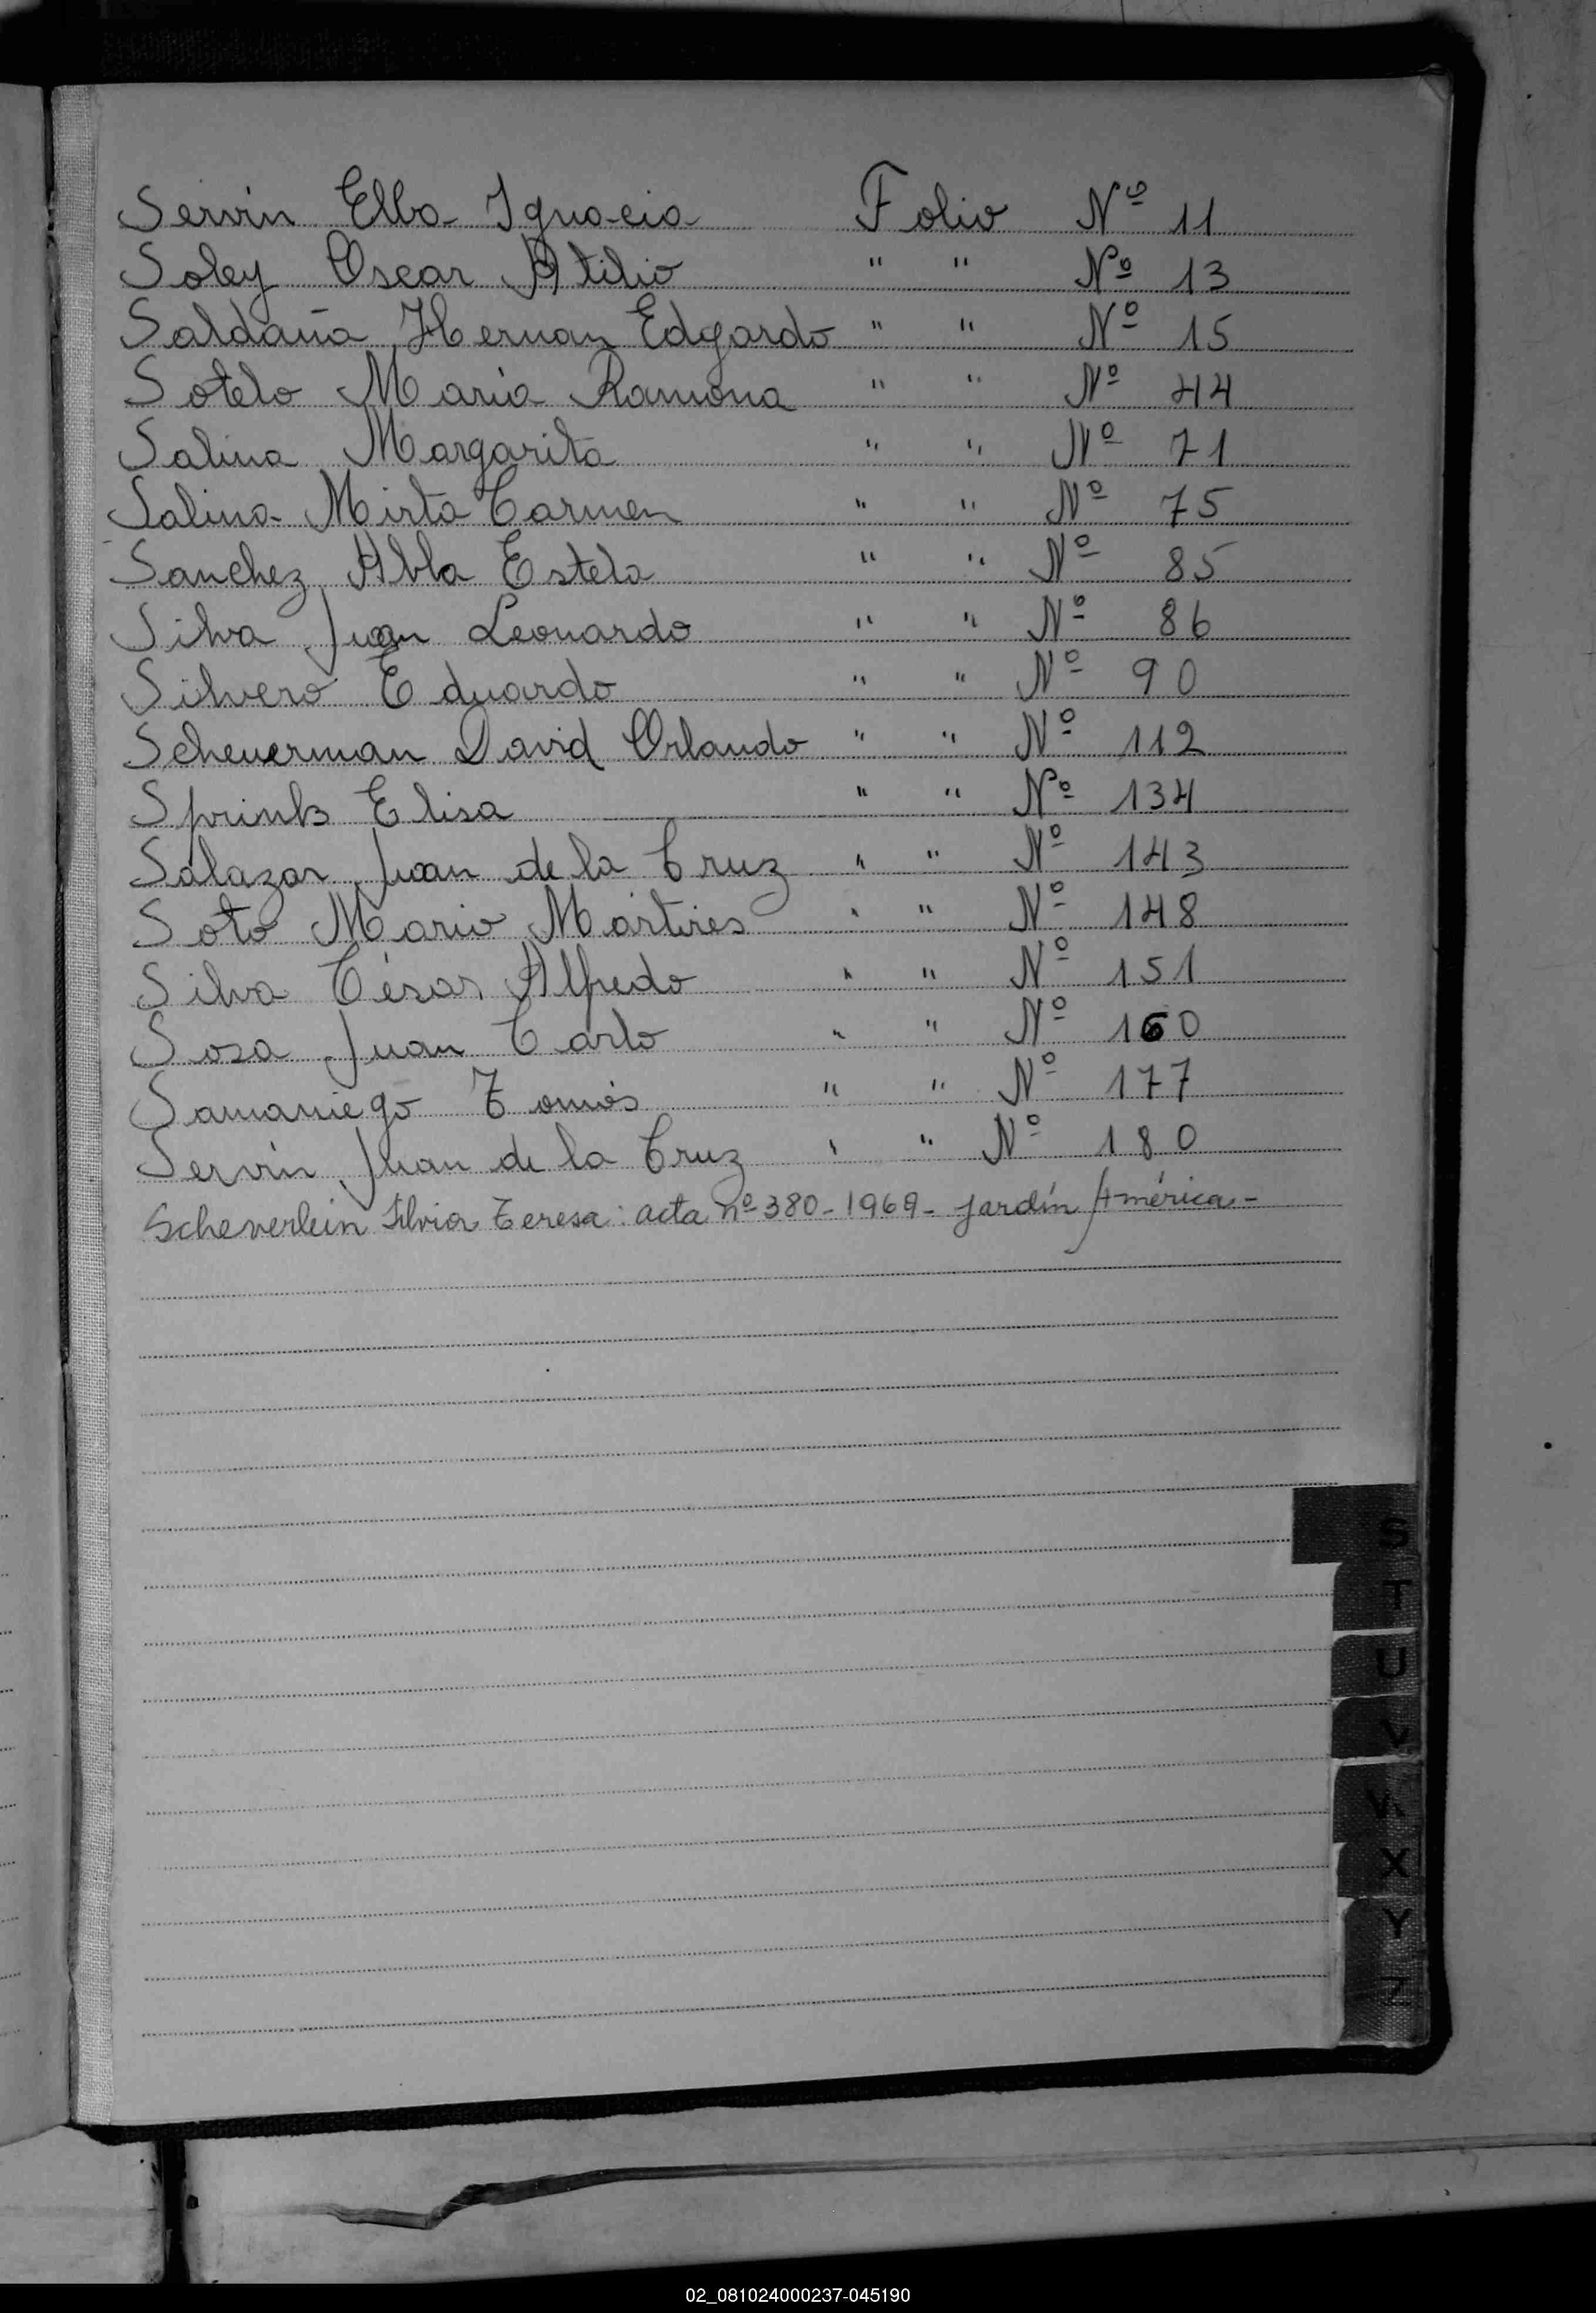 Servin Elba Ignacia Folio Nº 11
Soley Oscar Atilio " " Nº 13
Saldaña Hernan Edgardo " " Nº 15
Sotelo Maria Ramona " " Nº 44
Salina Margarita " " Nº 71
Salina Mirta Carmen " " Nº 75
Sanchez Alba Estela " " Nº 85
Silva Juan Leonardo " " Nº 86
Silvero Eduardo " " Nº 90
Scheuerman David Orlando " " Nº 112
Elisa " " Nº 134
Salazar Juan de la Cruz " " Nº 143
Soto Mario Mártires " " Nº 148
Silva César Alfredo " " Nº 151
Sosa Juan Carlo " " Nº 160
Samaniego Tomás " " Nº 177
Servin Juan de la Cruz " " Nº 180
Scheverlein Silvia Teresa: acta nº 380-1969- Jardín América-
S
T
U
V
W
X
Y
Z
02_081024000237-045190